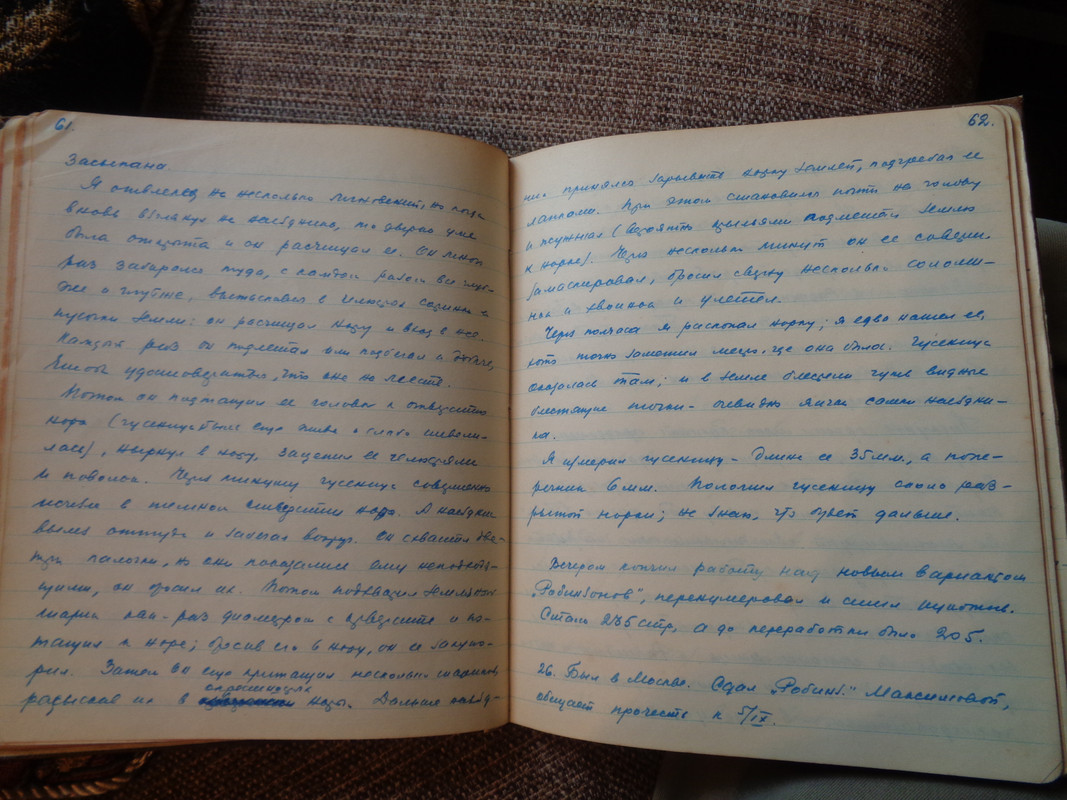 61.
Засыпана.
Я отвлекся на несколько мгновений, но когда
вновь взглянул на наездника, то дверка уже
была открыта и он расчищал ее. Он много
раз забирался туда, с каждым разом все глуб-
же и глубже, вытаскивая в челюстях соринки и
кусочки земли: он расчищал нору и вход в нее.
Каждый раз он подлетал или подбегал к добыче,
чтобы удостовериться, что она на месте.
Потом он подтащил ее головой к отверстию
норы (гусеница была еще жива и слабо шевели-
лась), нырнул в нору, зацепил ее челюстями
и поволок. Через минуту гусеница совершенно
исчезла в темном отверстии норы. А наездник
вылез оттуда и забегал вокруг. Он схватил две-
три палочки, но они показались ему неподходя-
щими, он бросил их. Потом подтащил земляной
шарик как-раз диаметром с отверстие и по-
тащил к норе; бросив его в нору, он ее закупо-
рил. Затем он еще притащил несколько шариков,
раздвигая их в окрестностях норы. Дальше наезд-
62.
ник принялся зарывать норку землей, подгребая ее
лапками. При этом становился почти на голову
и жужжал (
к норке). Через несколько минут он ее соверш.
замаскировал, бросил сверху несколько солом-
нок и хвоинок и улетел.
Через полчаса я раскопал норку; я едва нашел ее,
хоть точно заметил место, где она была. Гусеница
оказалась там; и в земле блестели чуть видные
блестящие точки - очевидно яички самки наездни-
ка.
Я измерил гусеницу - длина ее 35 мм., а попе-
речник 6 мм. Положил гусеницу около раз-
рытой норки; не знаю, что будет дальше.
Вечером кончил работу над новым вариантом
„Робинзонов", перенумеровал и сшил
Стало 235 стр, а до переработки было 205.
26. Был в Москве. Сдал „Робинз." Максимовой,
обещает прочесть к 5/IX.